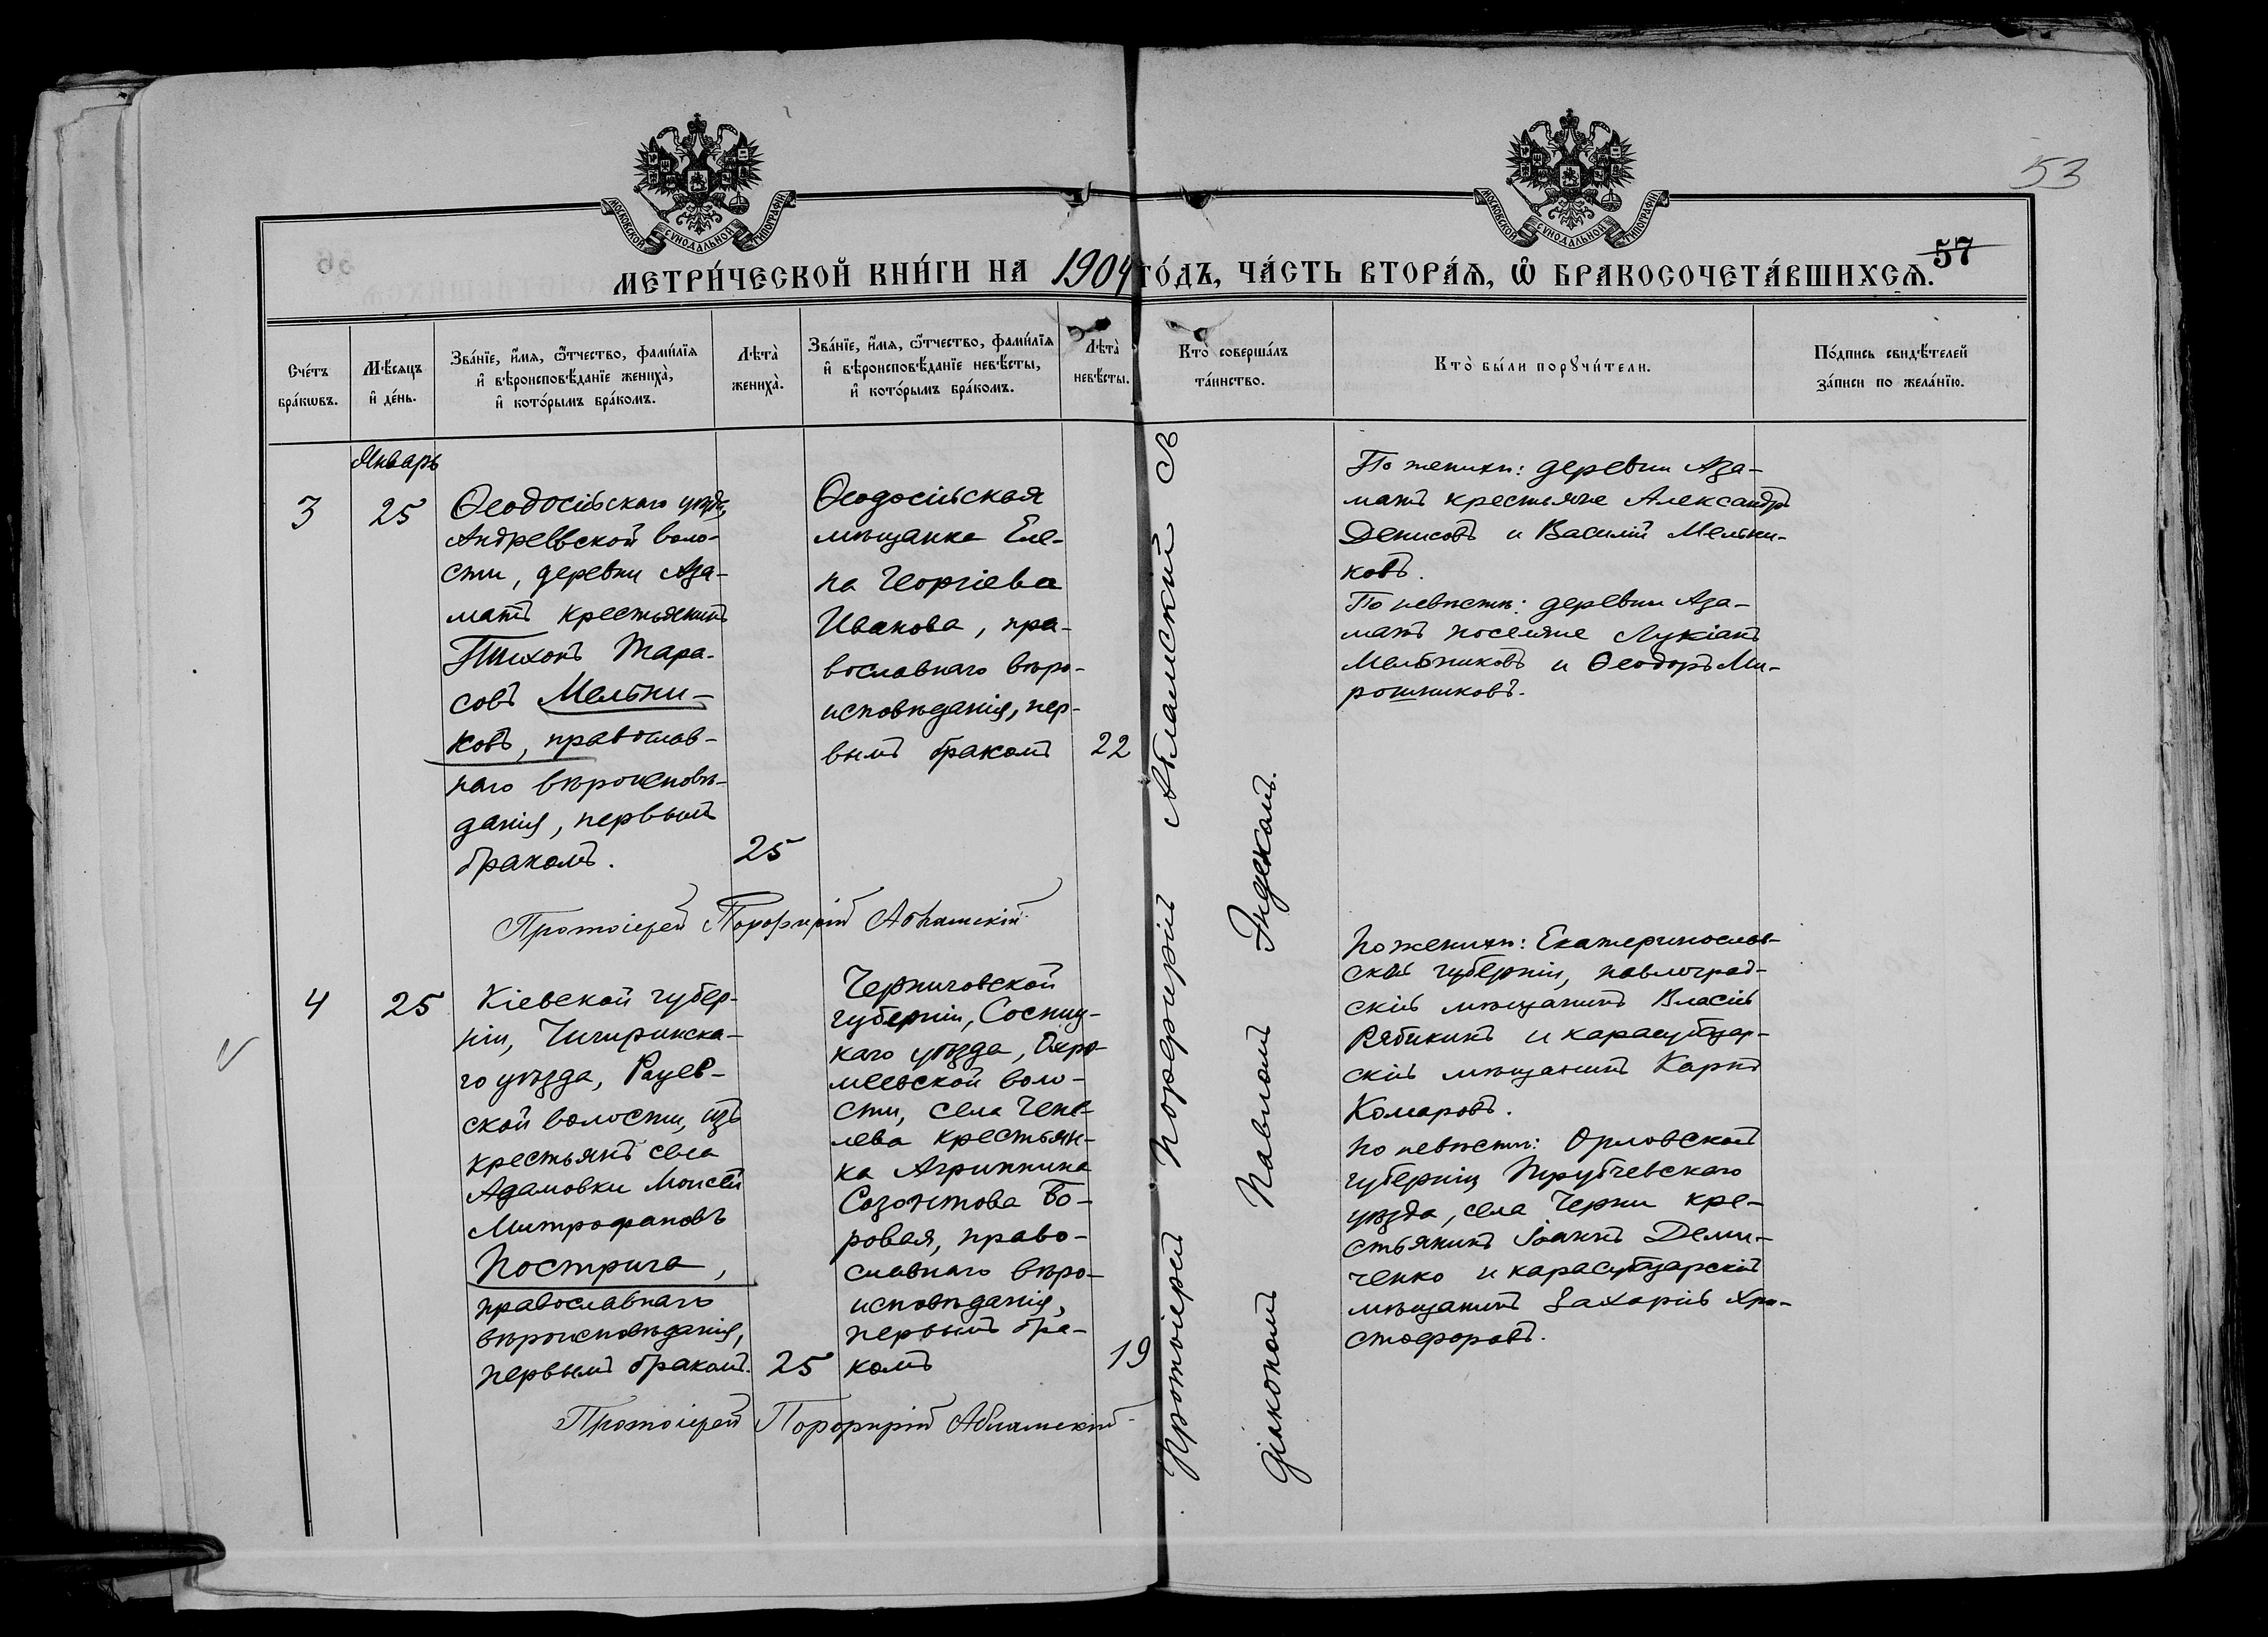 МОСКОВСКОЙ СѴНОДАЛЬНОЙ ТИПОГРАФІИ
МОСКОВСКОЙ СѴНОДАЛЬНОЙ ТИПОГРАФІИ
53
57
МЕТРИ́ЧЕСКОЙ КНИ́ГИ НА 1904 ГО́ДЪ, ЧА́СТЬ ВТОРА́Ѧ, Ѽ БРАКОСОЧЕТА́ВШИХСѦ.
Сче́тъ
бра́кѡвъ.
Мѣ́сѧцъ
и҆ де́нь.
Зва́нїе, и҆́мѧ, ѻ҆́тчество, фами́лїѧ
и҆ вѣроисповѣ́данїе жениха̀,
и҆ кото́рымъ бра́комъ.
Лѣта̀
жениха̀.
Зва́нїе, и҆́мѧ, ѻ҆́тчество, фами́лїѧ
и҆ вѣроисповѣ́данїе невѣ́сты,
и҆ кото́рымъ бра́комъ.
Лѣта̀
невѣ́сты.
Кто̀ соверша́лъ
та́инство.
Кто̀ бы́ли порꙋчи́тели.
По́дпись свидѣ́телей
за́писи по жела́нїю.
Январь
3
25
Ѳеодосійскаго уѣзда,
Андреевской воло-
сти, деревни Аза-
матъ крестьянинъ
Тихонъ Тара-
совъ Мельни-
ковъ, православ-
наго вѣроисповѣ-
данія, первымъ
бракомъ.
25
Ѳеодосійская
мѣщанка Еле-
на Георгіева
Иванова, пра-
вославнаго вѣро-
исповѣданія, пер-
вымъ бракомъ
22
Протоіерей Порфирій Абламскій съ
діакономъ Павломъ Индекомъ.
По женихѣ: деревни Аза-
матъ крестьяне Александръ
Денисовъ и Василій Мельни-
ковъ.
По невѣстѣ: деревни Аза-
матъ поселяне Лукіанъ
Мельниковъ и Ѳеодоръ Ми-
рошниковъ.
Протоіерей Порфирій Абламскій
4
25
Кіевской губер-
ніи, Чигиринска-
го уѣзда, Рацев-
ской волости, изъ
крестьянъ села
Адамовки Моисей
Митрофановъ
Пострига,
православнаго
вѣроисповѣданія,
первымъ бракомъ.
25
Черниговской
губерніи, Сосниц-
каго уѣзда, Охро-
меевской воло-
сти, села Чепе-
лева крестьян-
ка Агриппина
Созонтова Бо-
ровая, право-
славнаго вѣро-
исповѣданія,
первымъ бра-
комъ
19
По женихѣ: Екатеринослав-
ской губерніи, павлоград-
скій мѣщанинъ Власій
Рябикинъ и карасубазар-
скій мѣщанинъ Карпъ
Комаровъ.
По невѣстѣ: Орловской
губерніи Трубчевскаго
уѣзда, села Черни кре-
стьянинъ Іоаннъ Деми-
ченко и карасубазарскій
мѣщанинъ Захарій Хри-
стофоровъ.
Протоіерей Порфирій Абламскій